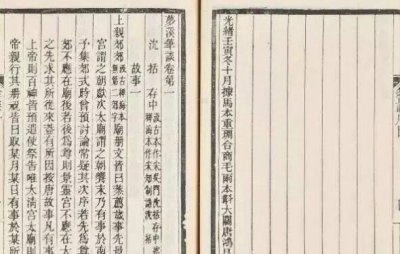 光緒壬寅冬十月據馬本重琱合商毛兩本斠大關唐鴻
夢溪筆談卷第一
沈括存中
故事一
上親郊郊汲古稗海本無第二郊字廟册文皆曰恭薦歲事先景
宮謂之朝獻次太廟謂之朝饗末乃有事於南
予集郊式時曾預討論常疑其次序若先為尊
郊不應在廟後若後為尊則景靈宮不應在太
之先求其所從來蓋有所因按唐故事凡有事
上帝則百神皆預遣使祭告唯太清宮太廟則
帝親行其册祝皆曰取某月某日有事於某所